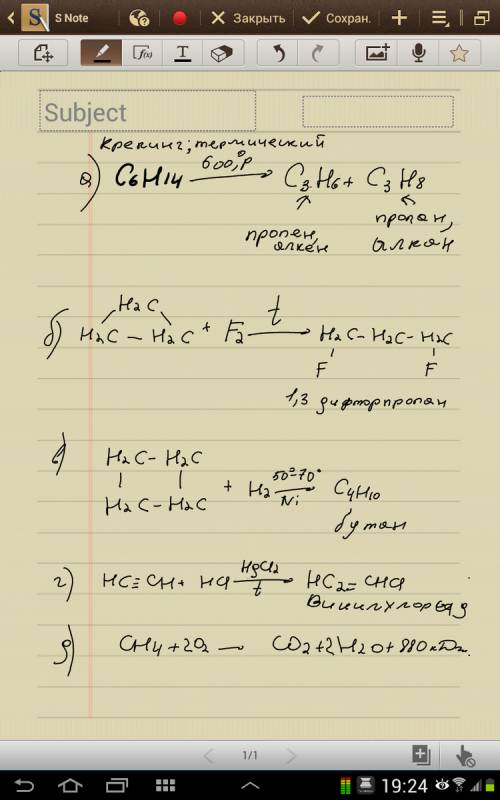 S Note
Закрыть
Сохран.
Subject
Крекинг; термический
а) C6H14 600°, P → C3H6 + C3H8
пропен, алкен
пропан, алкан
б) H2C
H2C — H2C + F2 t → H2C - H2C - H2C
F F
1,3 дифторпропан
в) H2C - H2C
H2C - H2C + H2 50°-70° Ni → C4H10
бутан
г) HC≡CH + HCl HgCl2 t → HC2=CHCl
Винилхлорид
д) CH4 + 2O2 — CO2 + 2H2O + 880 кДж.
1/1
19:24